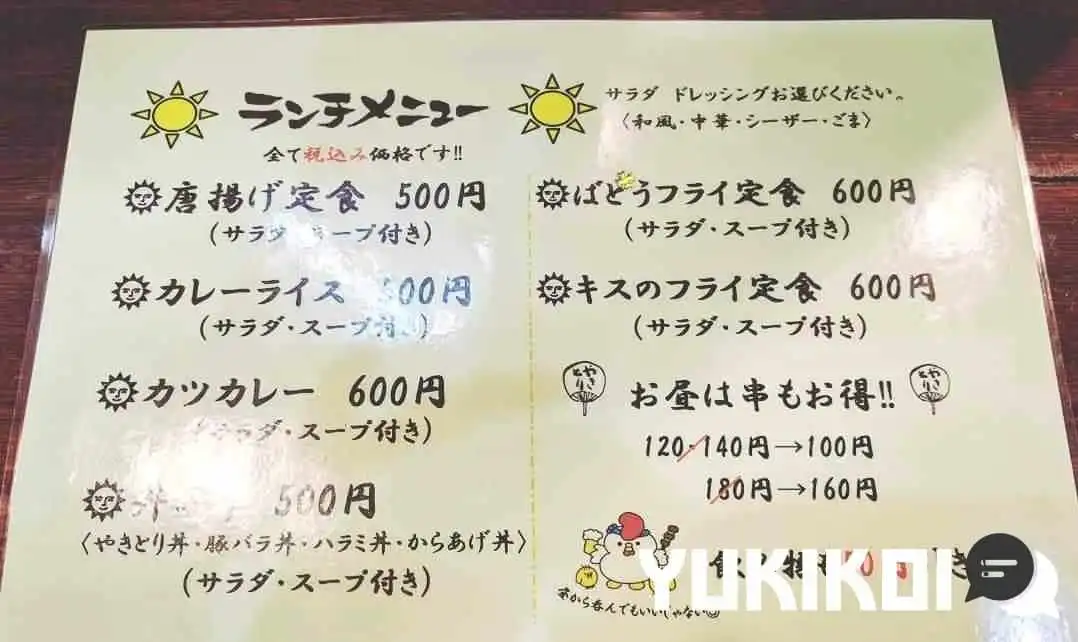 ランチメニュー
全て税込み価格です!!
サラダ ドレッシングお選びください。
〈和風・中華・シーザー・ごま〉
唐揚げ定食 500円
(サラダ・スープ付き)
カレーライス 500円
(サラダ・スープ付き)
カツカレー 600円
(サラダ・スープ付き)
500円
〈やきとり丼・豚バラ丼・ハラミ丼・からあげ丼〉
(サラダ・スープ付き)
ばとうフライ定食 600円
(サラダ・スープ付き)
キスのフライ定食 600円
(サラダ・スープ付き)
やきとり
お昼は串もお得!!
やきとり
120・140円→100円
180円→160円
昼から呑んでもいいじゃない
YUKIKOI